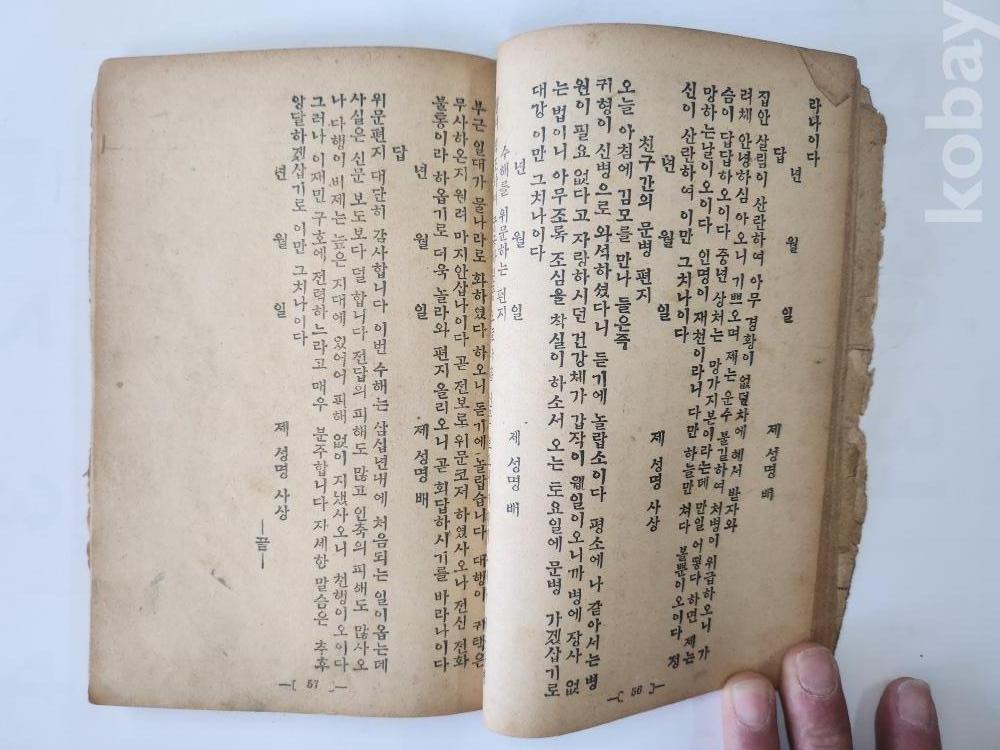 라나이다
년 월 일 제 성명 배
답
집안 살림이 산란하여 아무 경황이 없던차에 혜서 받자와
려체 안녕하심 아오니 기쁘오며 제는 운수 불길하여 처병이 위급하오니 가
슴이 답답하오이다 중년 상처는 망가지본이라는데 만일 어떻다 하면 제는
망하는날이오이다 인명이 재천이라니 다만 하늘만 쳐다 볼뿐이오이다 정
신이 산란하여 이만 그치나이다
년 월 일 제 성명 사상
친구간의 문병 편지
오늘 아침에 김모를 만나 들은즉
귀형이 신병으로 와석하셨다니 듣기에 놀랍소이다 평소에 나 같아서는 병
원이 필요 없다고 자랑하시던 건강체가 갑작이 웬일이오니까 병에 장사 없
는 법이니 아무쪼록 조심을 착실이 하소서 오는 토요일에 문병 가겠삽기로
대강 이만 그치나이다
년 월 일 제 성명 배
수해를 위문하는 편지
—[ 56 ]—
부근 일대가 물나라로 화하였다 하오니 듣기에 놀랍습니다 대행이 귀택은
무사하온지 원려 마지안삽나이다 곧 전보로 위문코저 하였사오나 전신 전화
불통이라 하옵기로 더욱 놀라와 편지 올리오니 곧 회답하시기를 바라나이다
년 월 일 제 성명 배
답
위문편지 대단히 감사합니다 이번 수해는 삼십년내에 처음되는 일이옵는데
사실은 신문 보도보다 덜 합니다 전답의 피해도 많고 인축의 피해도 많사오
나 다행이 비제는 높은 지대에 있어어 피해 없이 지냈사오니 천행이오이다
그러나 이재민 구호에 전력하느라고 매우 분주합니다 자세한 말씀은 추후
앙달하겠삽기로 이만 그치나이다
년 월 일 제 성명 사상
—끝—
—[ 57 ]—
kobay